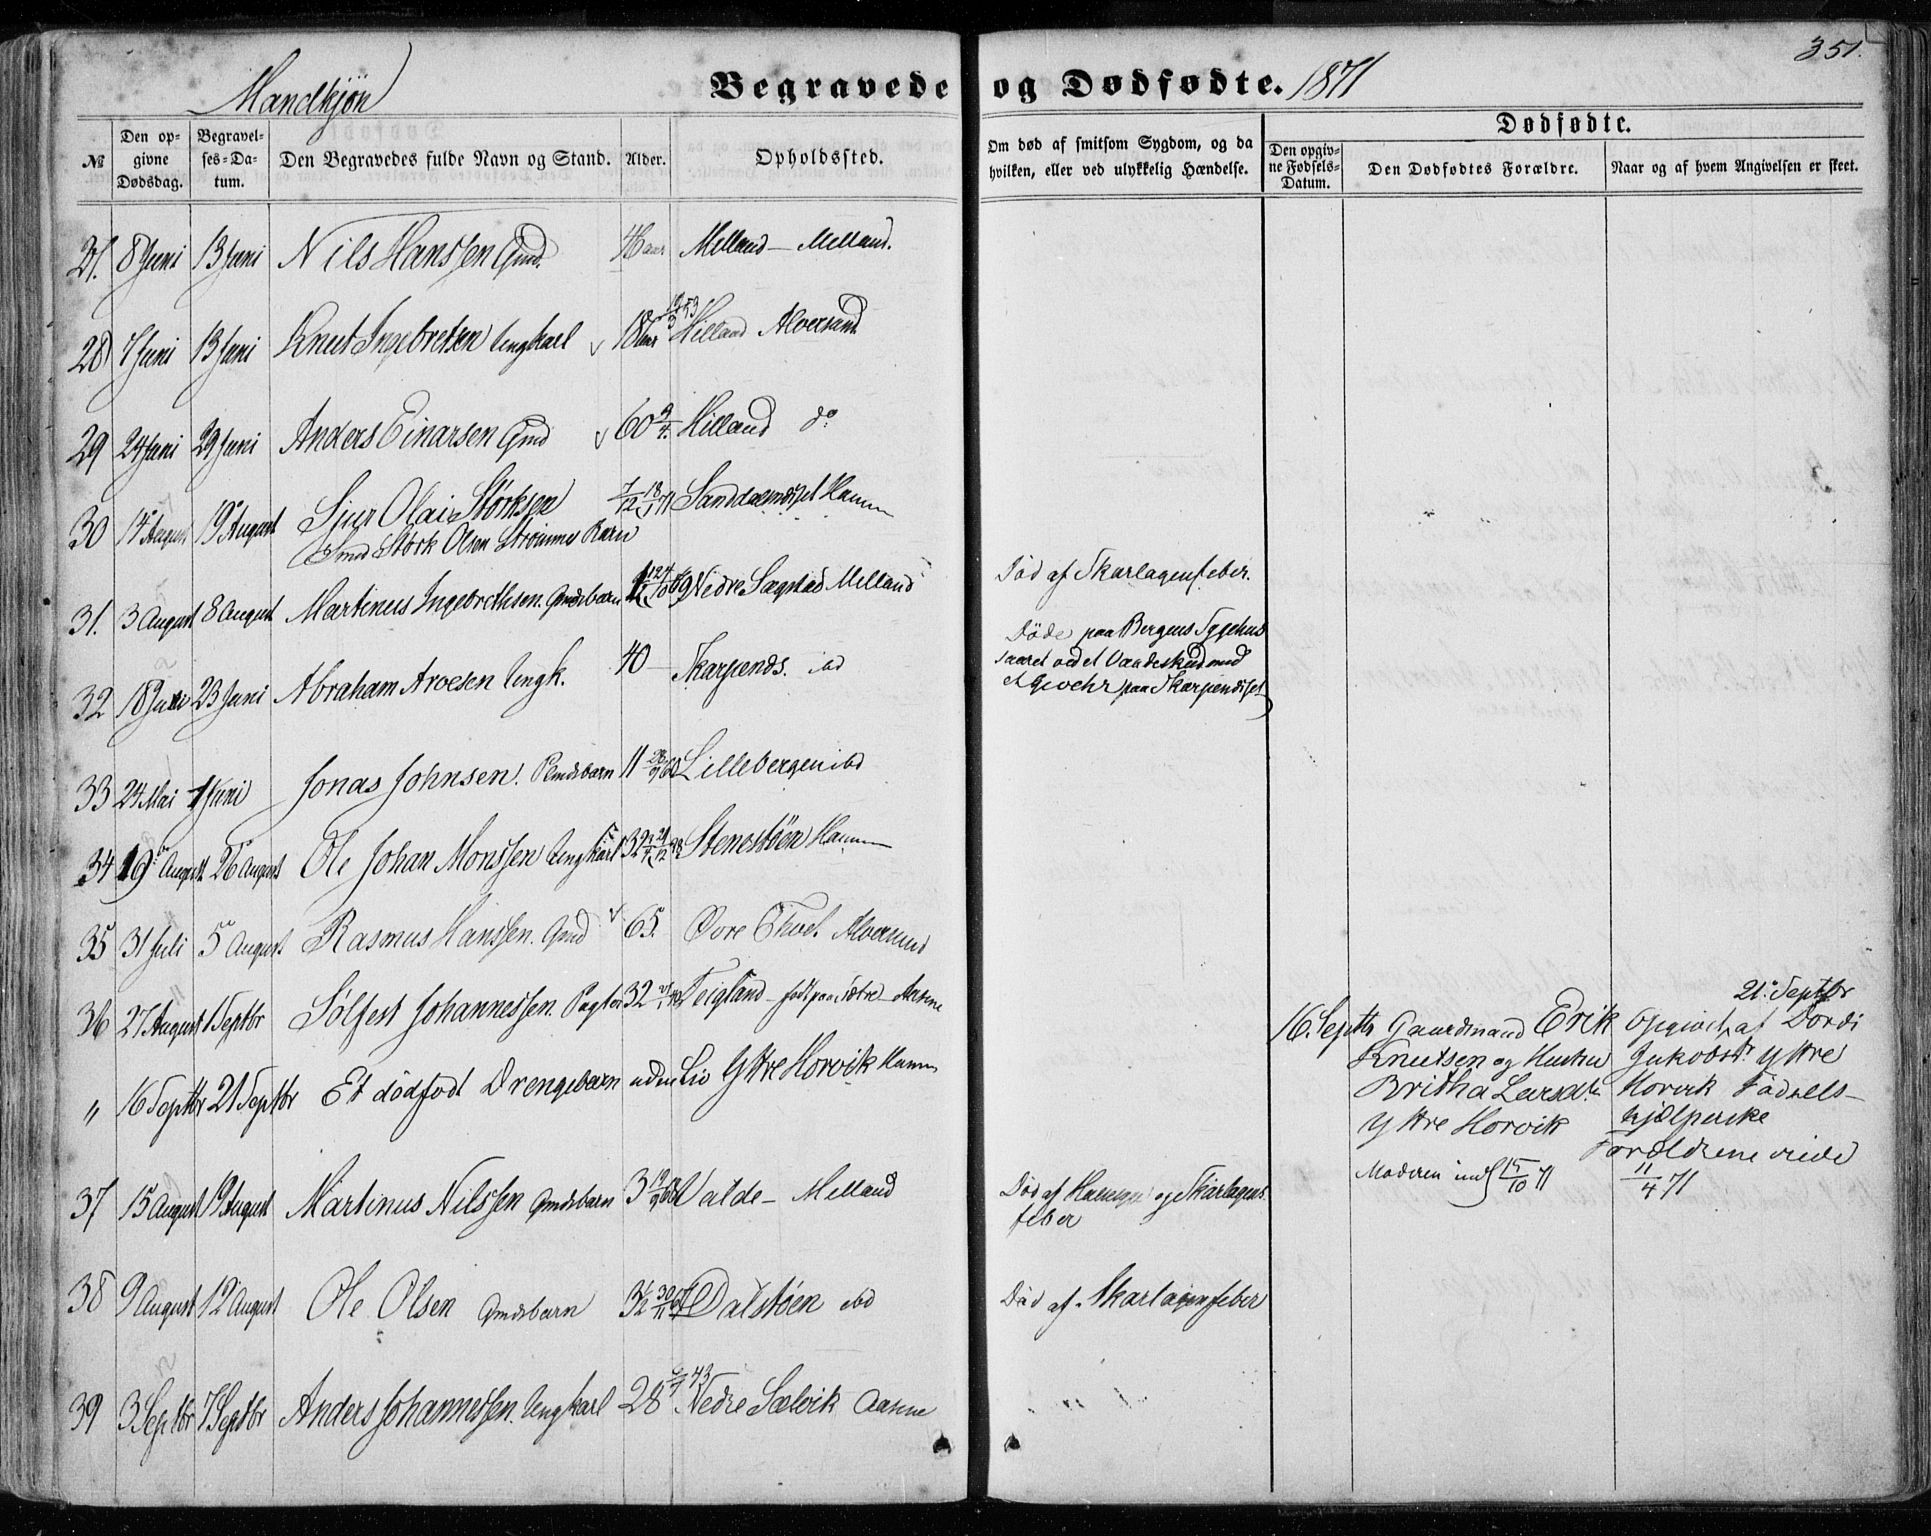 351.
Mandkjøn
Begravede og Dødfødte. 1871
Dødfødte.
№ Den opgivne Dødsdag. Begravelses-Datum. Den Begravedes fulde Navn og Stand. Alder. Opholdssted. Om død af smitsom Sygdom, og da hvilken, eller ved ulykkelig Hændelse. Den opgivne Fødsels-Datum. Den Dødfødtes Forældre. Naar og af hvem Angivelsen er skeet.
8 Juni 13 Juni Nils Hanssen Gmd. aar Melland – Melland.
28 7 Juni 13 Juni Knut Ingebretsen Ungkarl 18 aar Hilland Alversund
29 24 Juni 29 Juni Anders Einarsen Gmd 60 3/4. Hilland do
30 14 August 19 August Sjur Olai Størksen 7/12 18/1 71 Hamm
Smed Størk Olsen Strømmes Barn
31. 3 August 8 August Martinus Ingebrethsen. Gmdsbarn 69 Nedre Sægstad Melland Død af Skarlagensfeber.
32 18 Juni 23 Juni Abraham Aroesen Ungk. 40 Skarpends. ibd Døde paa Bergens Sygehus
saaret ved et Vaadeskud med
et Gevehr paa Skarpendset
33 24 Mai 1 Juni Jonas Johnsen. Pmdsbarn 11 28/9 60 Lillebergen ibd
34 19 August 26 August Ole Johan Monssen Ungkarl 32 Stenestøen Hamm
35 31 Juli 5 August Rasmus Hanssen. Gmd 65. Øvre Tvet Alversund
36 27 August 1 Septbr Sølfest Johannessen. 32 Teigland – født paa Sætre
" 16 Septbr 21 Septbr Et dødfødt Drengebarn uden Liv Yttre Horvik Hamm 16. Septbr Gaardmand Erik
Knutsen og Hustru
Britha Larsdtr
Yttre Horvik
21. Septbr
Opgivet af Dordi
Jakobsdtr Yttre
Horvik Fødsels-
hjælperske
Forældrene viede
11/4 71
Moderen indl 15/10 71
37 15 August 19 August Martinus Nilssen Gmdsbarn 3 19/9 68 Valde – Melland Død af og Skarlagens
feber
38 9 August 12 August Ole Olsen Gmdsbarn 3 1/2 30/11 67 Dalstøen ibd Død af Skarlagensfeber
39 3 Septbr 7 Septbr Anders Johannessen. Ungkarl 28 43 Nedre Sælvik Aasene